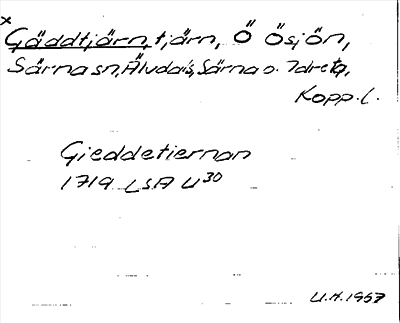 x
Gäddtjärn, tjärn, Ö Ösjön,
Särna sn, Älvdals, Särna o. Idre tg,
Kopp. l.
Gieddetiernan
1719 LSA U30
U.H. 1957